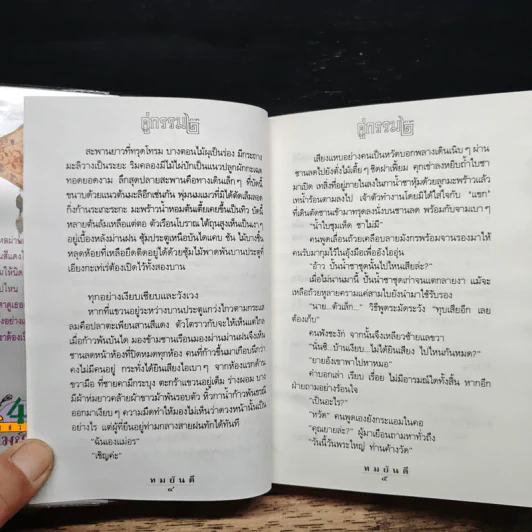 คู่กรรม ๒
สะพานยาวที่ทรุดโทรม บางตอนไม้ผุเป็นร่อง มีกระถาง
มะลิวางเป็นระยะ ริมคลองมีไม้ไผ่ปักเป็นแนวปลูกผักกระเฉด
ทอดยอดงาม ลึกสุดปลายสะพานคือทางเดินเล็กๆ ที่บัดนี้
ขนาบด้วยแนวต้นมะลิอีกเช่นกัน พุ่มบนแนวที่มิได้ตัดเล็มลอด
กิ่งก้านระเกะระกะ มะพร้าวน้ำหอมต้นเตี้ยเคยขึ้นเป็นทิว บัดนี้
หลายต้นล้มเหลือแต่ตอ ตัวเรือนโบราณใต้ถุนสูงเห็นเป็นเงา
อยู่เบื้องหลังม่านฝน ซุ้มประตูเหนือบันไดแคบ ชัน ไม้บางชิ้น
หลุดห้อยที่เหลือยึดติดอยู่ได้ด้วยซุ้มไม้พาดพันบานประตูที่
เอียงกะเท่เร่ต้องเปิดไว้ทั้งสองบาน
ทุกอย่างเงียบเชียบและวังเวง
หากที่แขวนอยู่ระหว่างบานประตูแกว่งไกวตามกระแส
ลมคือปลาตะเพียนสานสีแดง ตัวโตราวกับจะให้เห็นแต่ไกล
เมื่อก้าวพ้นบันได มองข้ามชานเรือนมองผ่านม่านฝนจึงเห็น
ชานลดหน้าห้องที่ปิดหมดทุกห้อง คนที่ก้าวขึ้นมาเกือบนึกว่า
คงไม่มีคนอยู่ กระทั่งได้ยินเสียงไอเบาๆ จากห้องแรกด้าน
ขวามือ ที่ชายคามีกระบุง ตะกร้าแขวนอยู่เต็ม ร่างผอม บาง
มีผ้าห่มยาวคล้ายผ้าขาวม้าพันรอบตัว หิ้วกาน้ำก้าวพ้นธรณี
ออกมาเงียบๆ ความมืดทำให้มองไม่เห็นว่าดวงหน้านั้นเป็น
อย่างไร แต่ผู้ที่ยืนอยู่ท่ามกลางสายฝนทักได้ทันที
"ฉันเองแม่อร"
"เชิญค่ะ"
ทมยันตี
๘
คู่กรรม ๒
เสียงแหบอย่างคนเป็นหวัดบอกพลางเดินเนิบๆ ผ่าน
ชานลดไปยังตั่งไม้เตี้ยๆ ชิดฝาเพี้ยม คุกเข่าลงหยิบถ้ำใบชา
มาเปิด เทสิ่งที่อยู่ภายในลงในกาน้ำชาหุ้มด้วยลูกมะพร้าวแล้ว
เทน้ำร้อนตามลงไป เจ้าตัวทำงานโดยมิได้ใส่ใจกับ "แขก"
ที่เดินตัดชานเข้ามาทรุดลงนั่งบนชานลด พร้อมกับจามเบาๆ
"น้ำใบชุมเห็ด ชาไม่มี"
คนพูดเลื่อนถ้วยเคลือบลายมังกรพร้อมจานรองมาให้
คนรับมากุมไว้ในอุ้งมือเพื่ออังไออุ่น
"อ้าว ปั้นน้ำชาชุดนั้นไปไหนเสียล่ะ?"
เมื่อไม่นานมานี้ ปั้นน้ำชาชุดเก่าจนแตกลายงา แม้จะ
เหลือถ้วยหูลายครามแค่สามใบยังนำมาใช้รับรอง
"นาย...ตัวเล็ก..." วิธีพูดระมัดระวัง "ทุบเสียอีก เลย
ต้องเก็บ"
คนฟังชะงัก จากนั้นจึงเหลียวซ้ายแลขวา
"นั่นซิ...บ้านเงียบ...ไม่ได้ยินเสียง ไปไหนกันหมด?"
"ยายอังเขาพาไปหาหมอ"
คำบอกเล่า เรียบ เรื่อย ไม่มีอารมณ์ใดทั้งสิ้น หากอีก
ฝ่ายถามอย่างร้อนใจ
"เป็นอะไร?"
"หวัด" คนพูดเองยังกระแอมในคอ
"คุณยายล่ะ?" ผู้มาเยือนถามหาทั่วถึง
"วันนี้วันพระใหญ่ ท่านค้างวัด"
ทมยันตี
๙